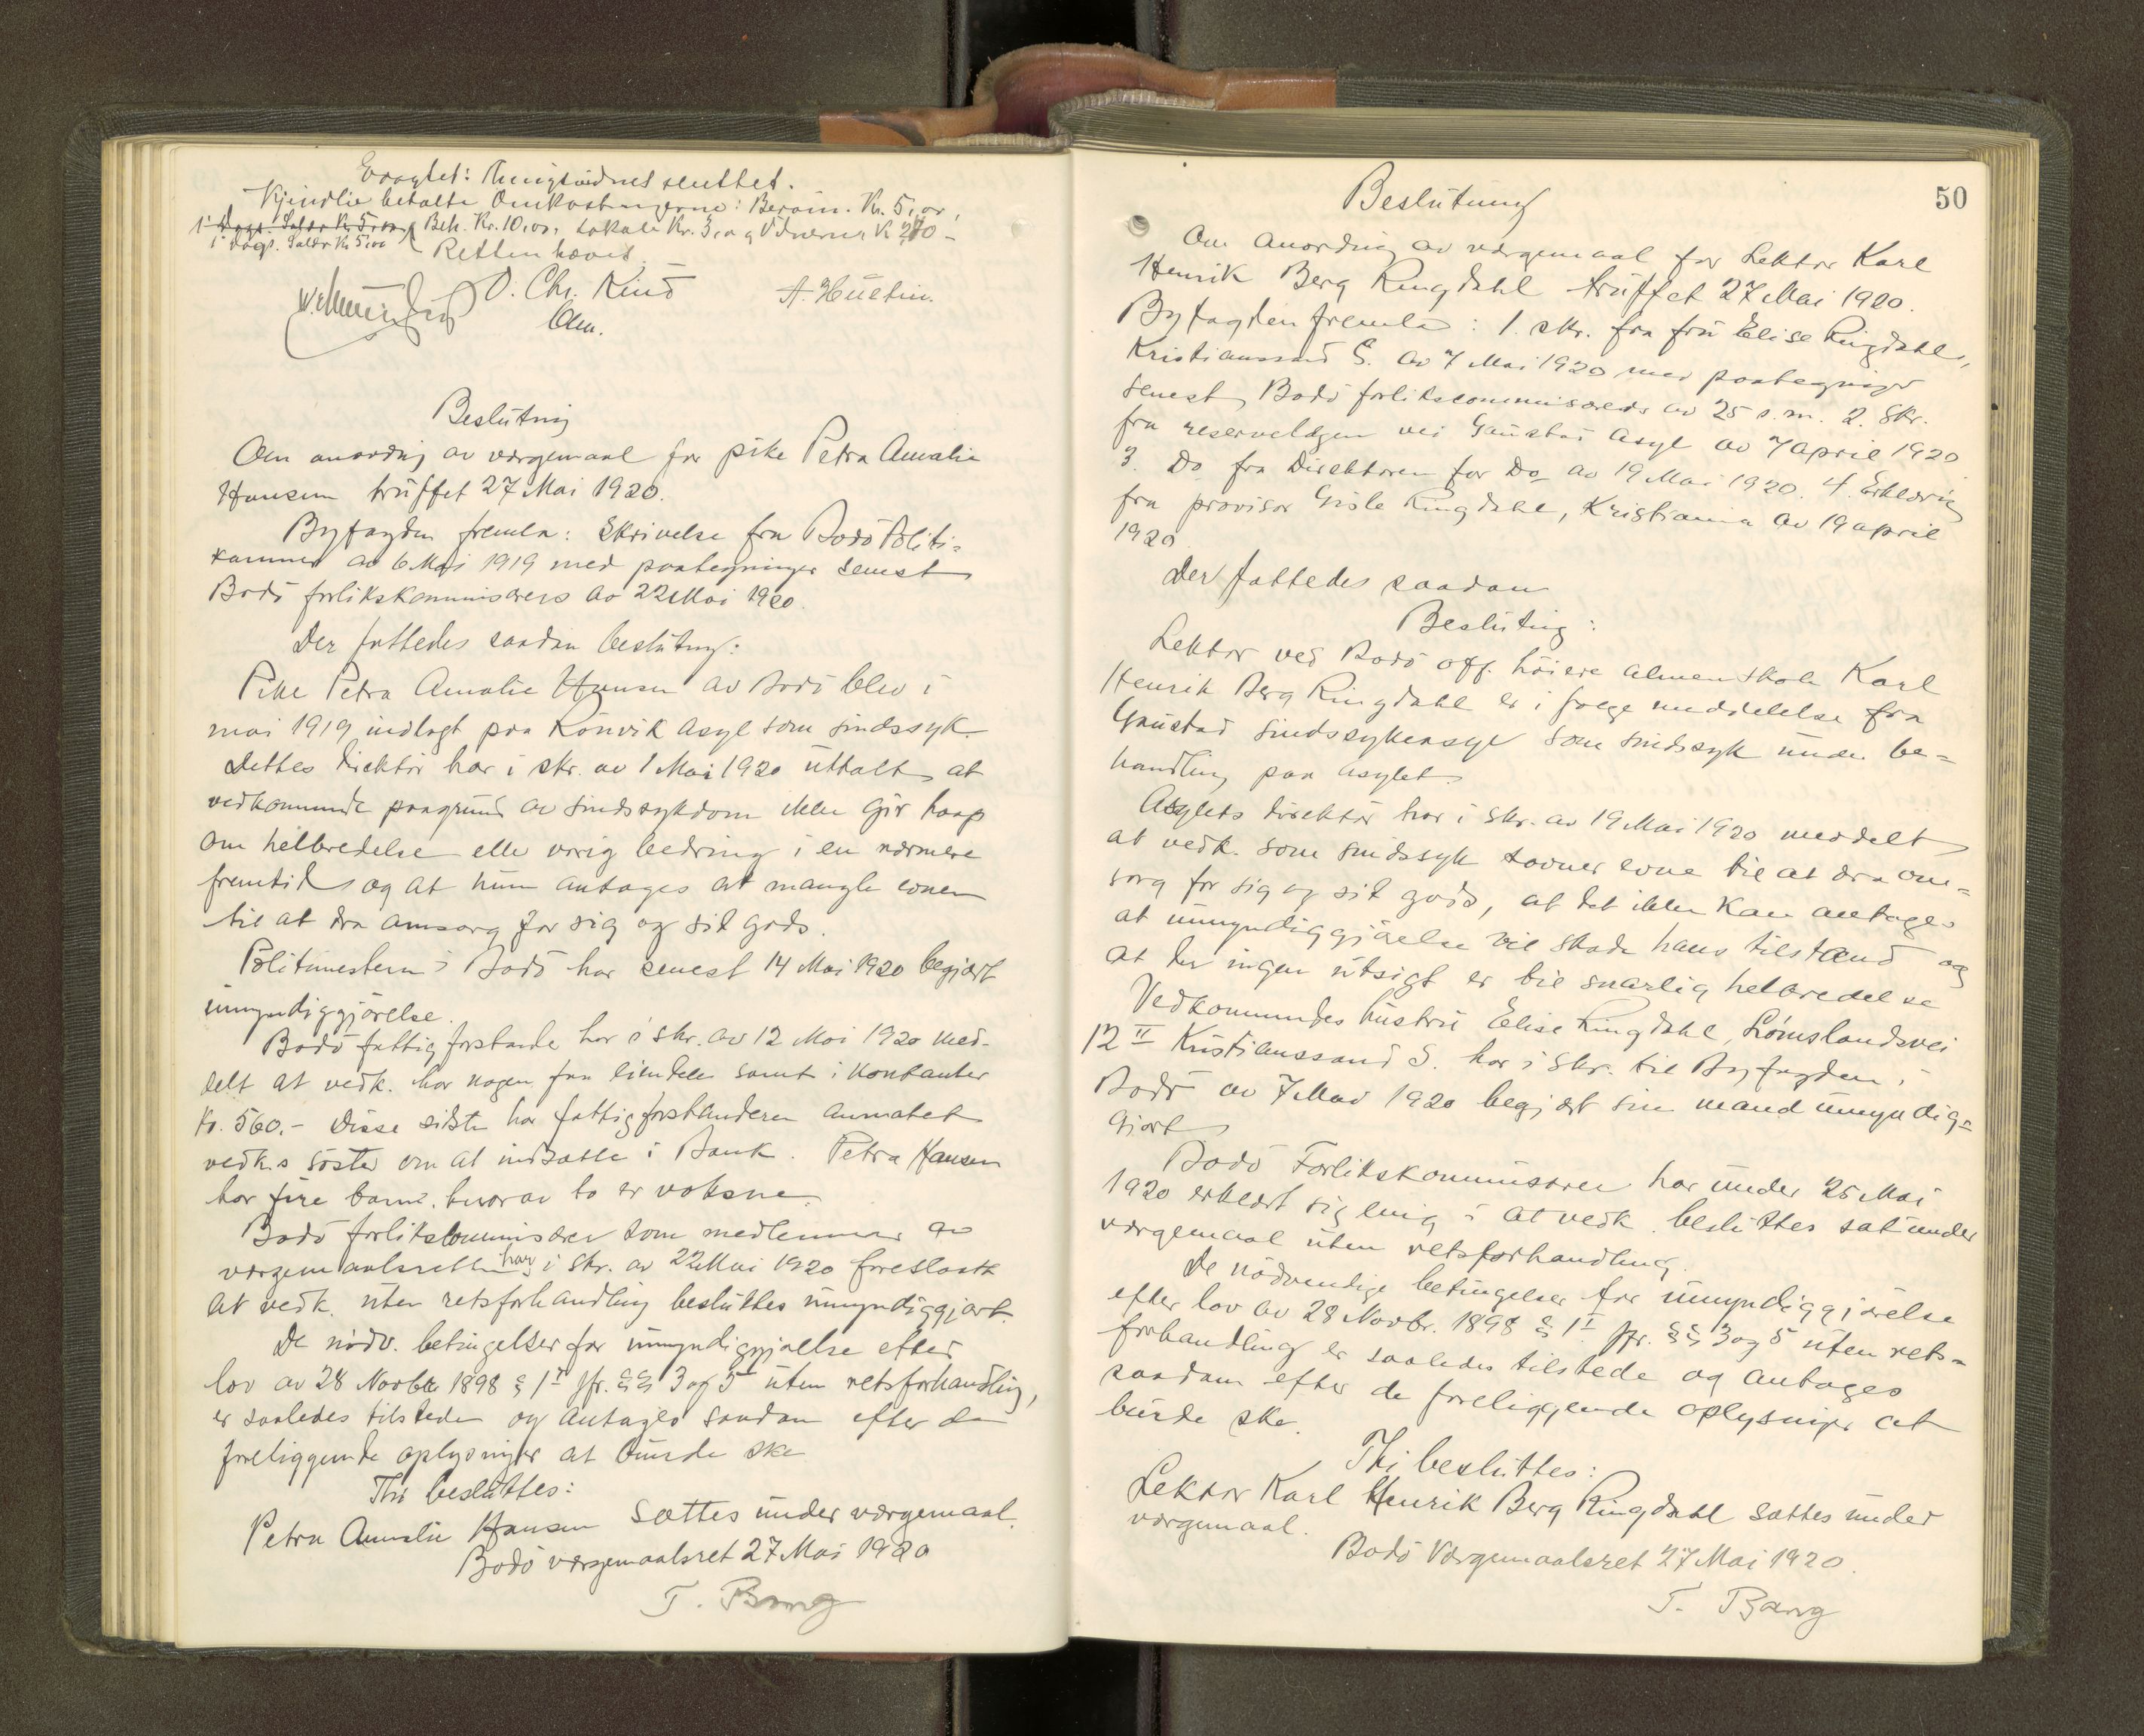 Evagtet: Tingsvidnet sluttet.
betalte Omkostningerne: Kr. 5,00,
1 Dags. Saldr Kr 5,00 Beh. Kr. 10,00, Lokale Kr. 3,00 og Vidnerne K 2,70 –
1 Dags. Saldr Kr 5,00 Retten hævet.
O. Chr. Rind A. Hustin.
Beslutning
Om anordng av værgemaal for pike Petra Amalie
Hansen truffet 27 Mai 1920.
Byfogden fremla: Skrivelse fra Bodö Politi=
kammer av 6 Mai 1919 med paategninger senest
Bodö forlikskommisærers av 22 Mai 1920.
Der fattedes saadan beslutng:
Pike Petra Amalie Hansen av Bodö blev i
mai 1919 indlagt paa Rönvik Asyl som sindssyk.
Dettes direktör har i skr. av 1 Mai 1920 uttalt at
vedkommende paagrund av sindssykdom ikke gir haap
om helbredelse eller varig bedring i en nærmere
fremtid og at hun antages at mangle evnen
til at dra omsorg for sig og sit gods.
Politimesteren i Bodö har senest 14 Mai 1920 begjært
umyndiggjörelse.
Bodö fattigforstander har i skr. av 12 Mai 1920 med-
delt at vedk. har nogen faa eiendele samt i kontanter
Kr. 560.- Disse sidste har fattigforstanderen anmodet
vedk.s söster om at indsætte i Bank. Petra Hansen
har fire barn, hvorav to er voksne.
Bodö forlikskommisærer som medlemmer av
værgemaalsretten har i skr. av 22 Mai 1920 foreslaat
at vedk. uten retsforhandling besluttes umyndiggjort.
De nödv. betingelser for umyndiggjörelse efter
lov av 28 Novbr 1898 § 1 I jfr. §§ 3 og 5 uten retsforhandling,
er saaledes tilstede og antages saadan efter de
foreliggende oplysninger at burde ske
Thi besluttes:
Petra Amalie Hansen sættes under værgemaal.
Bodö værgemaalsret 27 Mai 1920
T. Bang
50
Beslutning
Om anordning av værgemaal for Lektor Karl
Henrik Berg Ringdahl truffet 27 Mai 1920.
Byfogden fremla: 1. skr. fra fru Elise Ringdahl,
Kristianssand S. av 7 Mai 1920 med paategninger
senest Bodö forlikscommisærers av 25 s.m. 2. Skr.
fra reservelægen ved Gaustad Asyl av 7 april 1920
3. Do fra Direktören for Do av 19 Mai 1920. 4. Erklæring
fra provisor Gisle Ringdahl, Kristiania av 19 april
1920.
Der fattedes saadan
Beslutning:
Lektor ved Bodö off. höiere almenskole Karl
Henrik Berg Ringdahl er i fölge meddelelse fra
Gaustad Sindssykeasyl som sindssyk under be=
handling paa asylet.
Asylets direktör har i skr. av 19 Mai 1920 meddelt
at vedk. som sindssyk savner evne til at dra om=
sorg for sig og sit gods, at det ikke kan antages
at umyndiggjörelse vil skade hans tilstand og
at der ingen utsigt er til snarlig helbredelse
Vedkommendes hustru Elise Ringdahl, Lömslandsvei
12 II Kristianssand S. har i skr. til Byfogden i
Bodö av 7 Mai 1920 begjært sin mand umyndig=
gjort
Bodö Forlikskommisærer har under 25 Mai
1920 erklært sig enig i at vedk. besluttes sat under
værgemaal uten retsforhandling.
De nödvendige betingelser for umyndiggjörelse
efter lov av 28 Novbr. 1898 § 1 I jfr. §§ 3 og 5 uten rets=
forhandling er saaledes tilstede og antages
saadan efter de foreliggende oplysninger at
burde ske.
Thi besluttes:
Lektor Karl Henrik Berg Ringdahl sættes under
værgemaal.
Bodö Værgemaalsret 27 Mai 1920.
T. Bang